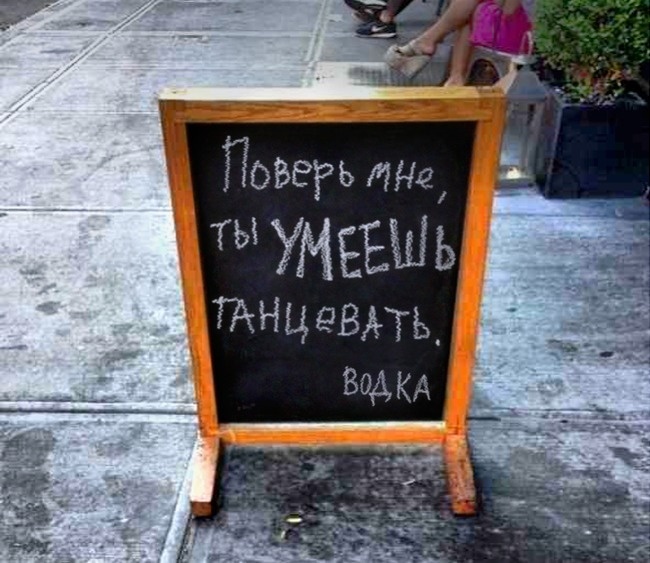 Поверь мне,
ты УМЕЕШЬ
танцевать.
Водка